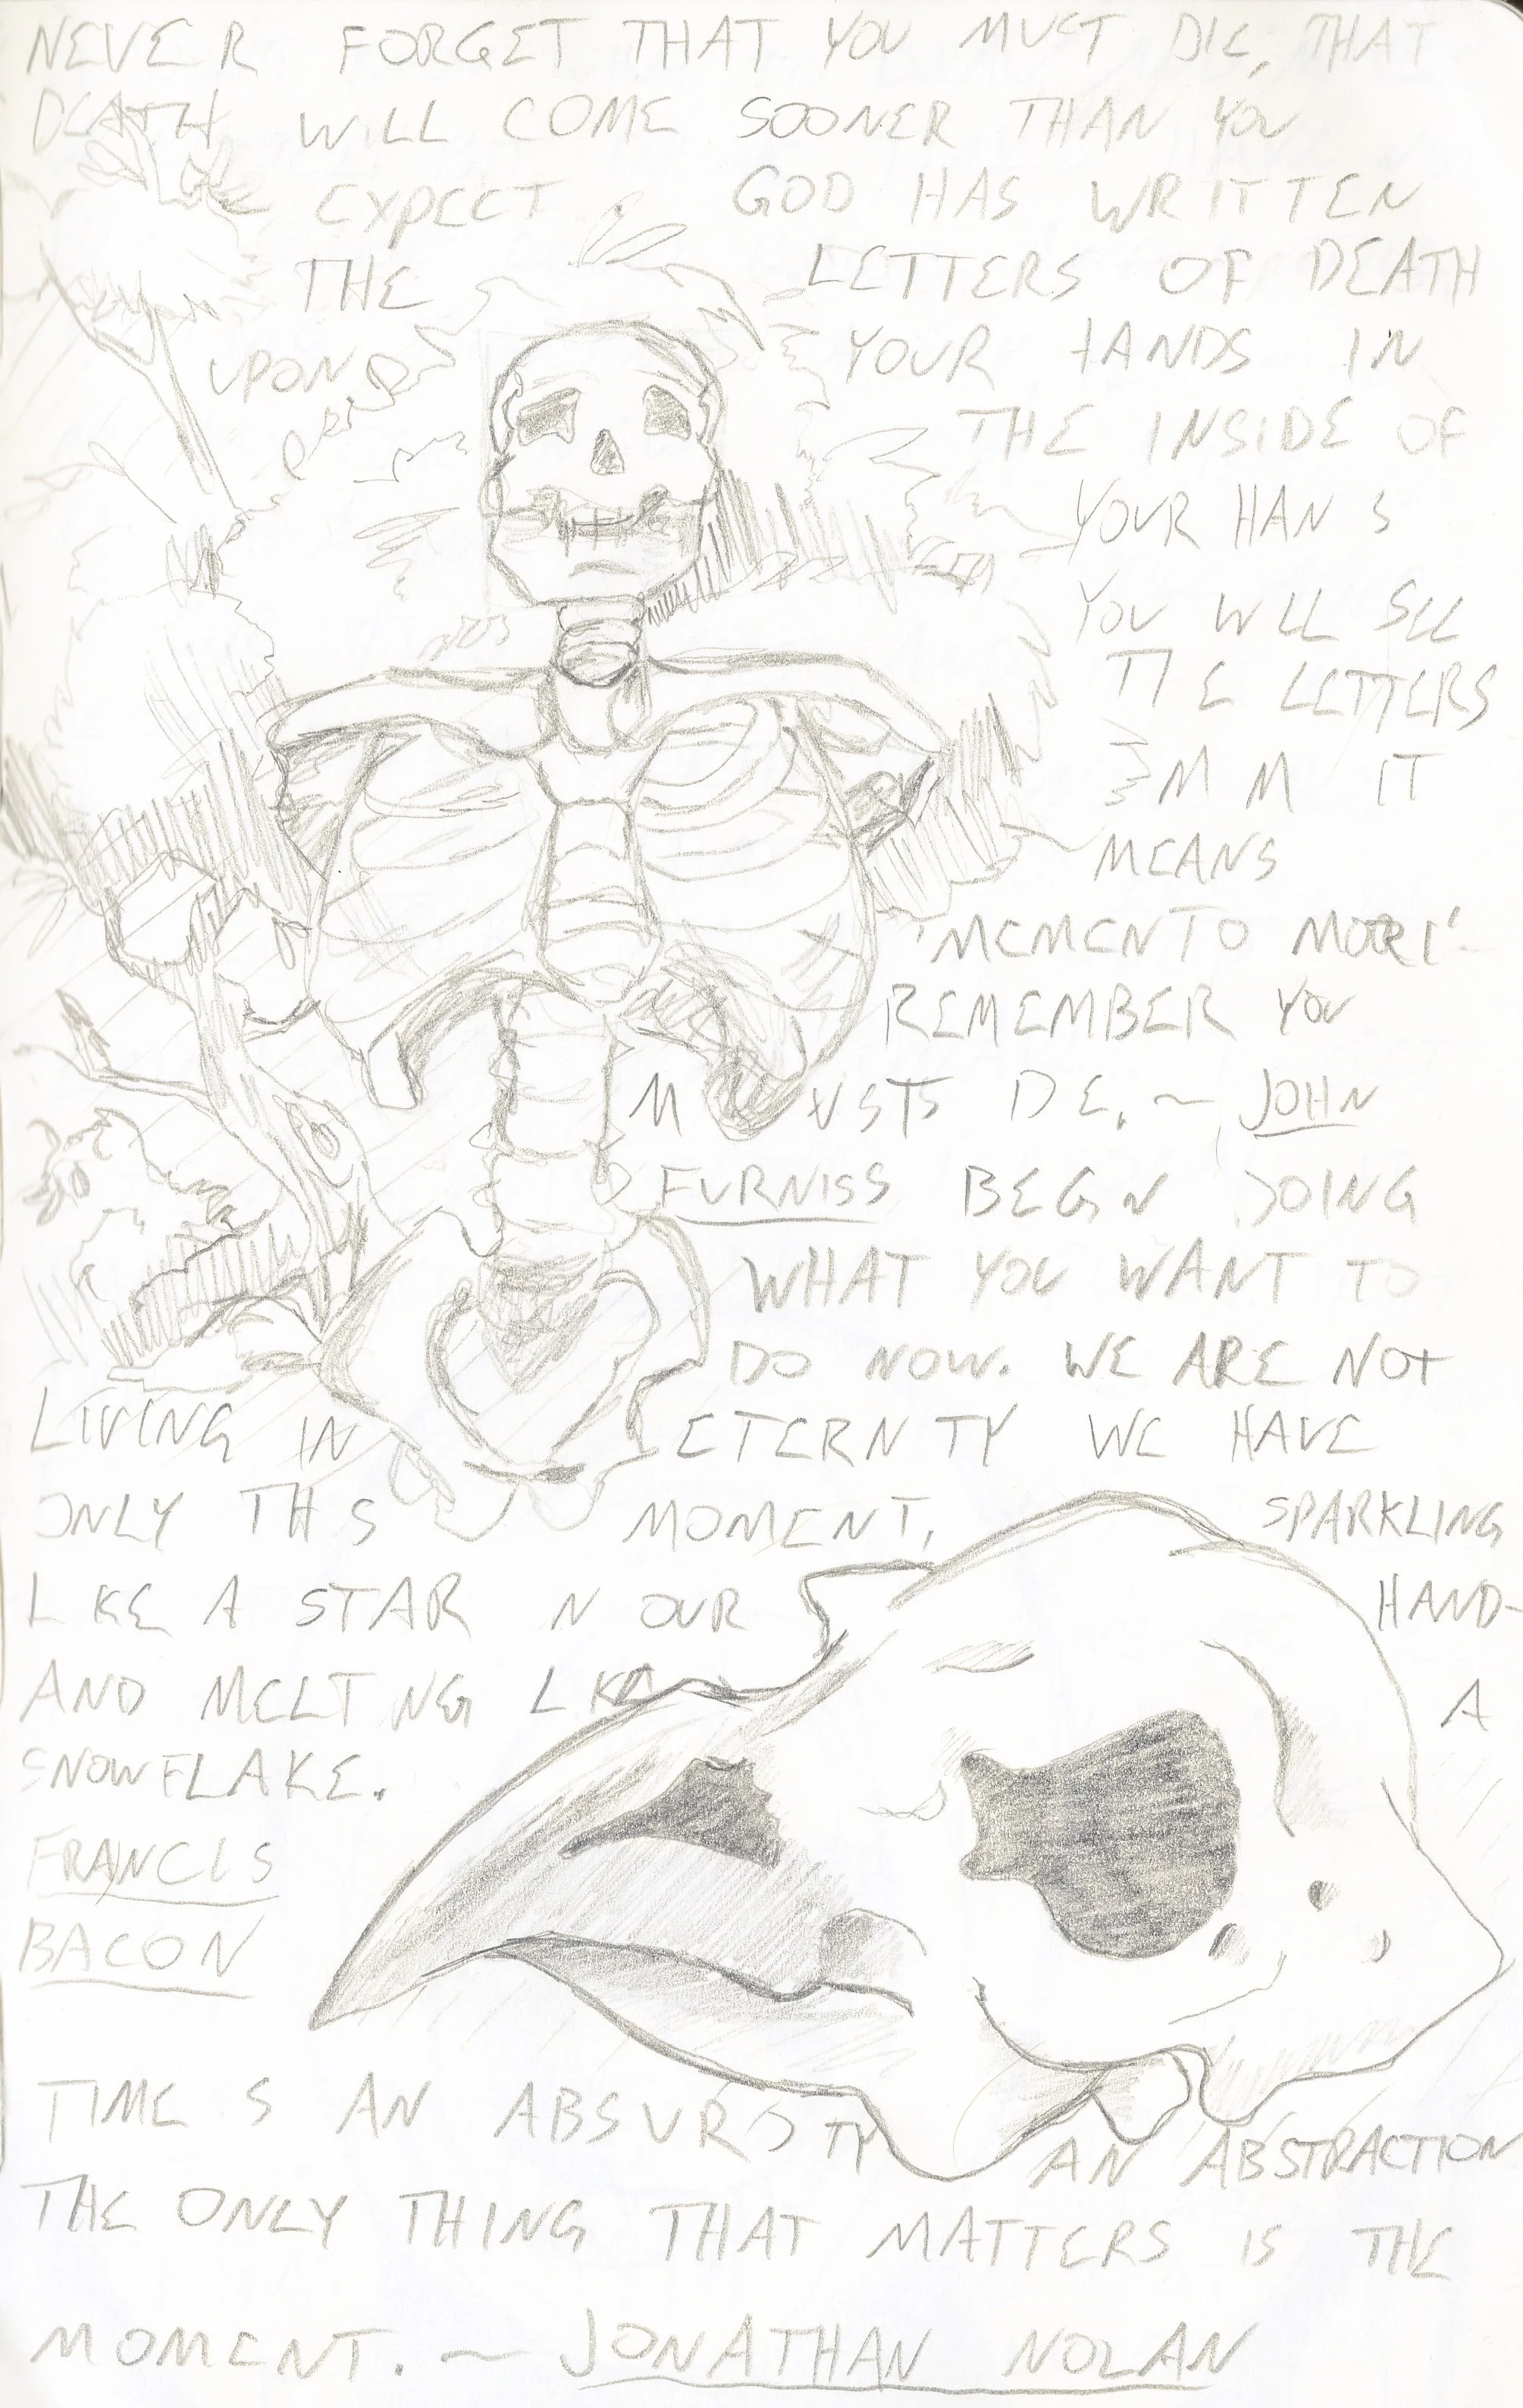 NEVER FORGET THAT YOU MUST DIE, THAT
DEATH WILL COME SOONER THAN YOU
EXPECT. GOD HAS WRITTEN
THE LETTERS OF DEATH
UPON YOUR HANDS IN
THE INSIDE OF
YOUR HAN S
YOU WLL SEE
THE LETTERS
M M IT
MEANS
'MEMENTO MORI'
REMEMBER YOU
MUSTS DE. ~ JOHN
FURNISS BEGN DOING
WHAT YOU WANT TO
DO NOW. WE ARE NOT
LIVING IN ETERN TY WE HAVE
ONLY TH S MOMENT, SPARKLING
L KE A STAR N OUR HAND-
AND MELT NG L KE A
SNOWFLAKE.
FRANCIS
BACON
TIME S AN ABSURD TY AN ABSTRACTION
THE ONLY THING THAT MATTERS IS THE
MOMENT. ~ JONATHAN NOLAN